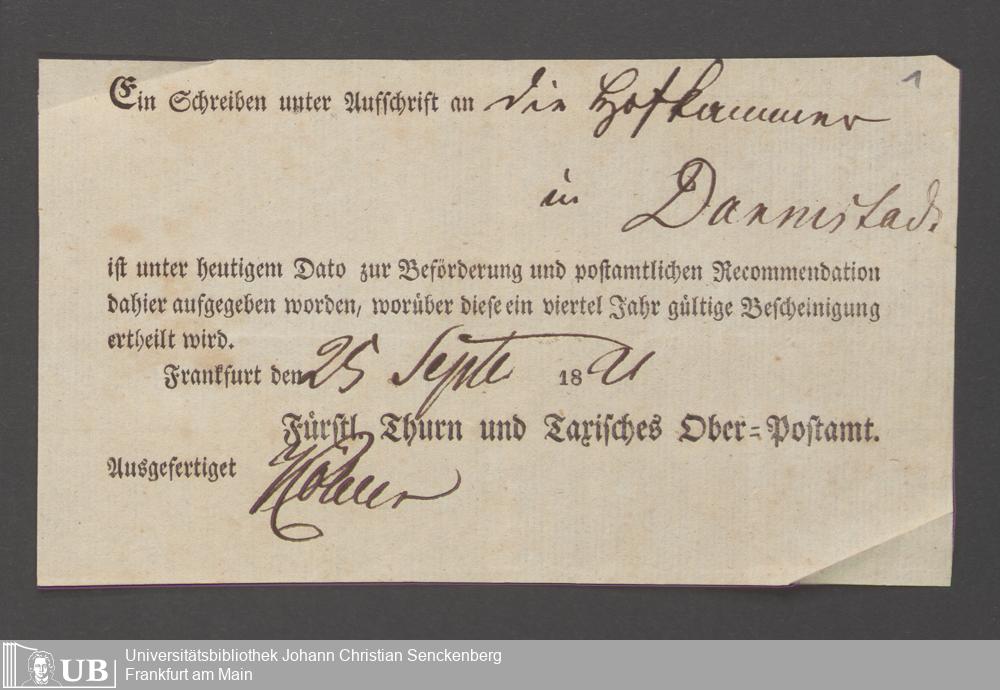 1
Ein Schreiben unter Aufschrift an die Hofkammer
in Darmstadt
ist unter heutigem Dato zur Beförderung und postamtlichen Recommendation
dahier aufgegeben worden, worüber diese ein viertel Jahr gültige Bescheinigung
ertheilt wird.
Frankfurt den 25 Septe 1821
Fürstl. Thurn und Taxisches Ober-Postamt.
Ausgefertiget
UB
Universitätsbibliothek Johann Christian Senckenberg
Frankfurt am Main